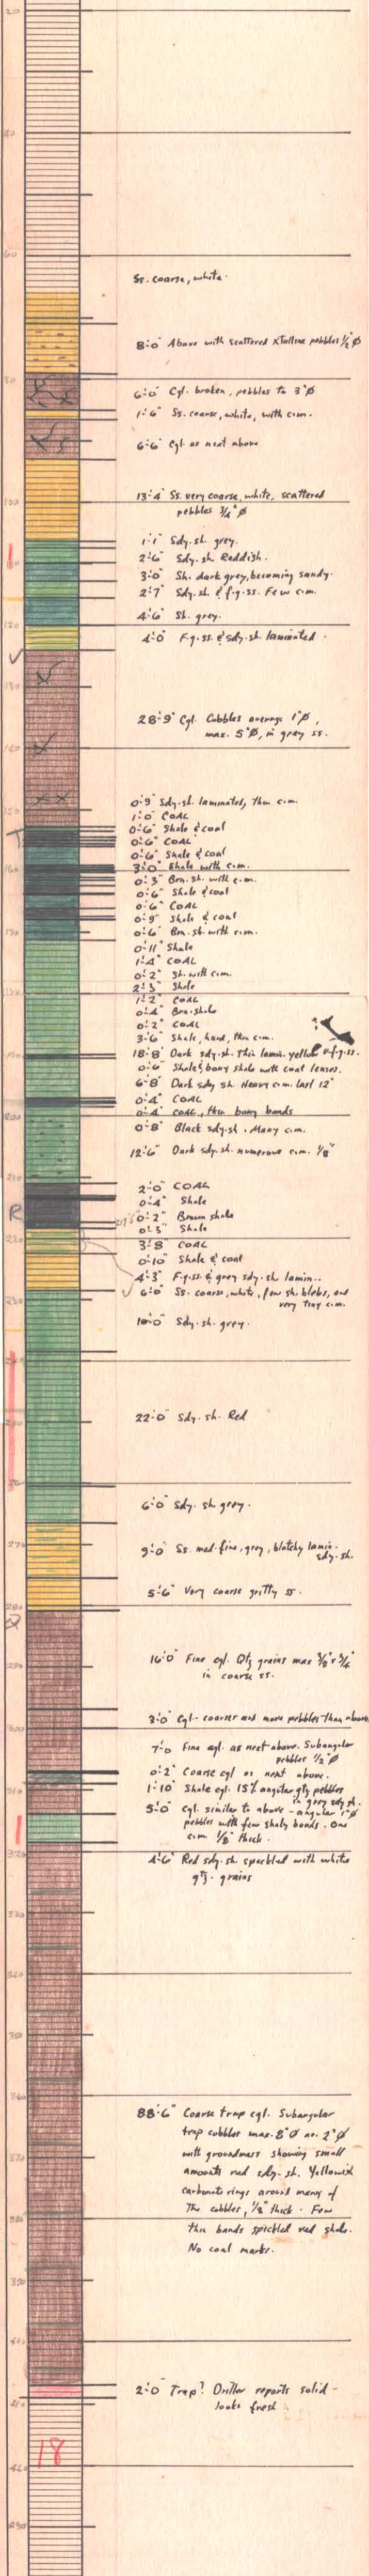 20
40
60
Ss. coarse, white.
8'0" Above with scattered xtalline pebbles 1/2"Ø
80
6'0" Cgl. broken, pebbles to 3"Ø
1'6" Ss. coarse, white, with c.m.
6'6" Cgl as next above
100
13'4" Ss. very coarse, white, scattered
pebbles 3/4"Ø
1'1" Sdy. sh. grey.
2'6" Sdy. sh. Reddish.
3'0" Sh. dark grey, becoming sandy.
2'7" Sdy. sh. & f.g. ss. Few c.m.
4'6" Sh. grey.
120
4'0" F.g. ss. & sdy. sh. laminated.
130
28'9" Cgl. Cobbles average 1"Ø,
max. 5"Ø, in grey ss.
0'9" Sdy. sh. laminated, thin c.m.
150
1'0" COAL
0'6" Shale & coal
T
0'6" COAL
0'6" Shale & coal
160
3'0" Shale with c.m.
0'3" Brn. sh. with c.m.
0'6" Shale & coal
0'6" COAL
0'9" Shale & coal
0'6" Brn. sh. with c.m.
170
0'11" Shale
1'4" COAL
0'2" Sh. with c.m.
2'3" Shale
1'2" COAL
0'4" Brn. shale
0'2" COAL
3'6" Shale, hard, thin c.m.
18'8" Dark sdy. sh. Thin lamin. yellow v.f.g. ss.
0'6" Shale & bony shale with coal lenses.
6'8" Dark sdy sh. Heavy c.m. last 12"
0'4" COAL
0'4" Coal, thin bony bands
0'8" Black sdy. sh. Many c.m.
12'6" Dark sdy. sh. numerous c.m. 1/8"
210
2'0" COAL
0'4" Shale
R
0'2" Brown shale
0'3" Shale
220
3'8" COAL
0'10" Shale & coal
4'3" F.g. ss. & grey sdy. sh lamin..
6'0" Ss. coarse, white, few sh. blebs, and
very tiny c.m.
230
10'0" Sdy. sh. grey.
22'0" Sdy. sh. Red
6'0" Sdy. sh grey.
270
9'0" Ss. med-fine, grey, blotchy lamin.
sdy. sh.
5'6" Very coarse gritty ss.
280
Q
16'0" Fine cgl. Qtz grains max 3/8" x 3/4"
in coarse ss.
290
3'0" Cgl- coarser and more pebbles than above
300
7'0 Fine cgl. as next above. Subangular
pebbles 1/2"Ø
0'2" Coarse cgl as next above.
1'10" Shale cgl. 15% angular qtz pebbles
in grey sdy sh.
310
5'0" cgl. similar to above - angular 1"Ø
pebbles with few shaly bands. One
c.m. 1/8" thick.
320
4'6" Red sdy. sh. speckled with white
qtz. grains
330
340
350
360
88'6" Coarse trap cgl. Subangular
trap cobbles max. 8"Ø av. 2"Ø
with groundmass showing small
amounts red sdy. sh. Yellowish
carbonate rings around many of
The cobbles, 1/8" thick. Few
thin bands speckled red shale.
No coal marks.
370
380
390
400
2'0" Trap? Driller reports solid -
looks fresh
410
18
420
430